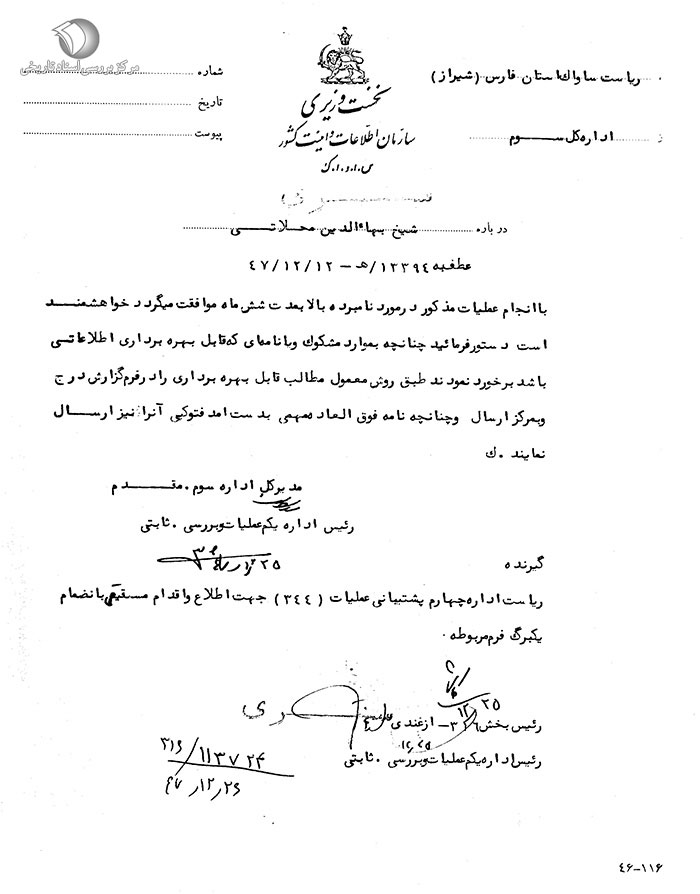 مرکز بررسی اسناد تاریخی
ریاست ساواک استان فارس (شیراز)
اداره کل سوم
نخست وزیری
سازمان اطلاعات و امنیت کشور
س.ا.و.ا.ک
شماره
تاریخ
پیوست
درباره شیخ بهاءالدین محلاتی
عطف به ۱۳۳۹٤/هـ – ٤۷/۱۲/۱۲
با انجام عملیات مذکور در مورد نامبرده بالا بمدت شش ماه موافقت میگردد خواهشمند
است دستور فرمائید چنانچه بموارد مشکوک و یا نامه‌ای که قابل بهره برداری اطلاعاتی
باشد برخورد نمودند طبق روش معمول مطالب قابل بهره برداری را در فرم گزارش درج
و بمرکز ارسال و چنانچه نامه فوق العاده مهمی بدست امد فتوکپی آنرا نیز ارسال
نمایند .ک
مدیرکل اداره سوم . مقدم
رئیس اداره یکم عملیات و بررسی . ثابتی
گیرنده
ریاست اداره چهارم پشتیبانی عملیات (۳٤٤) جهت اطلاع و اقدام مستقیم با نضمام
یکبرگ فرم مربوطه .
۲۵
۱۲
رئیس بخش ۳۱۶ – ازغندی
۱۲/۲۵
رئیس اداره یکم عملیات و بررسی . ثابتی
۳۱۶/۱۱۳۷۲۴
۴۷/۱۲/۲۶
٤۶–۱۱۶